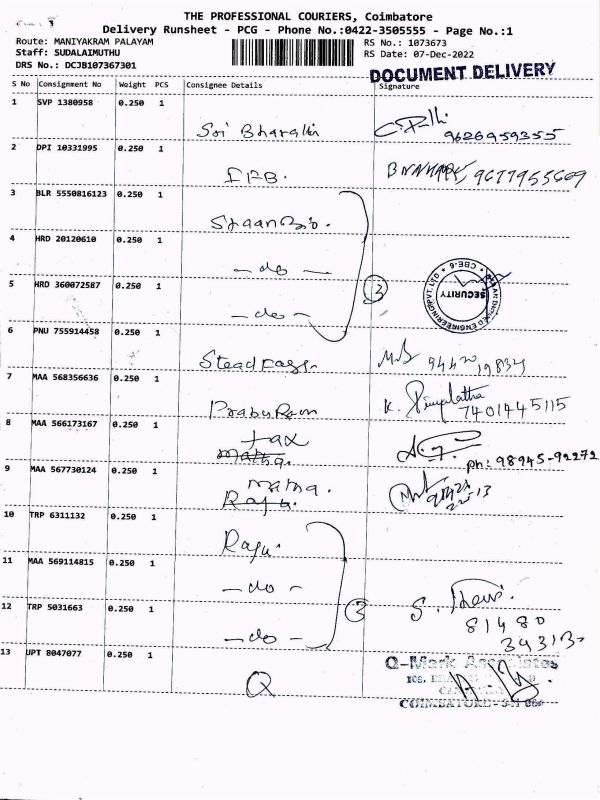 THE PROFESSIONAL COURIERS, Coimbatore
Delivery Runsheet - PCG - Phone No.:0422-3505555 - Page No.:1
Route: MANIYAKRAM PALAYAM
Staff: SUDALAIMUTHU
DRS No.: DCJB107367301
RS No.: 1073673
RS Date: 07-Dec-2022
DOCUMENT DELIVERY
S No Consignment No Weight PCS Consignee Details Signature
1 SVP 1380958 0.250 1
Sri Bharathi 9626959355
2 DPI 10331995 0.250 1
9677955609
3 BLR 5550816123 0.250 1
4 HRD 20120610 0.250 1
- do -
5 HRD 360072587 0.250 1
- do -
3
SECURITY
CBE-6
6 PNU 755914458 0.250 1
7 MAA 568356636 0.250 1
Prabu Ram K.
7401445115
8 MAA 566173167 0.250 1
tax
ph: 98945-92272
9 MAA 567730124 0.250 1
matha.
Raju.
10 TRP 6311132 0.250 1
Raju.
11 MAA 569114815 0.250 1
- do -
12 TRP 5031663 0.250 1
- do -
3
S.
81480
34313
13 UPT 8047077 0.250 1
Q
Q-Mark Associates
COIMBATORE